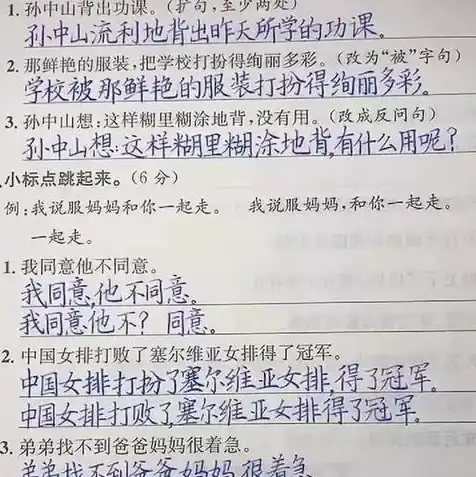 1. 孙中山背出功课。(扩句,至少两处)
孙中山流利地背出昨天所学的功课。
2. 那鲜艳的服装,把学校打扮得绚丽多彩。(改为“被”字句)
学校被那鲜艳的服装打扮得绚丽多彩。
3. 孙中山想:这样糊里糊涂地背,没有用。(改成反问句)
孙中山想:这样糊里糊涂地背,有什么用呢?
小标点跳起来。(6 分)
例:我说服妈妈和你一起走。 我说服妈妈,和你一起走。
一起走。
1. 我同意他不同意。
我同意,他不同意。
我同意他不? 同意。
2. 中国女排打败了塞尔维亚女排得了冠军。
中国女排打扮了塞尔维亚女排,得了冠军。
中国女排打败了,塞尔维亚女排得了冠军。
3. 弟弟找不到爸爸妈妈很着急。
弟弟找不到爸爸妈妈,很着急